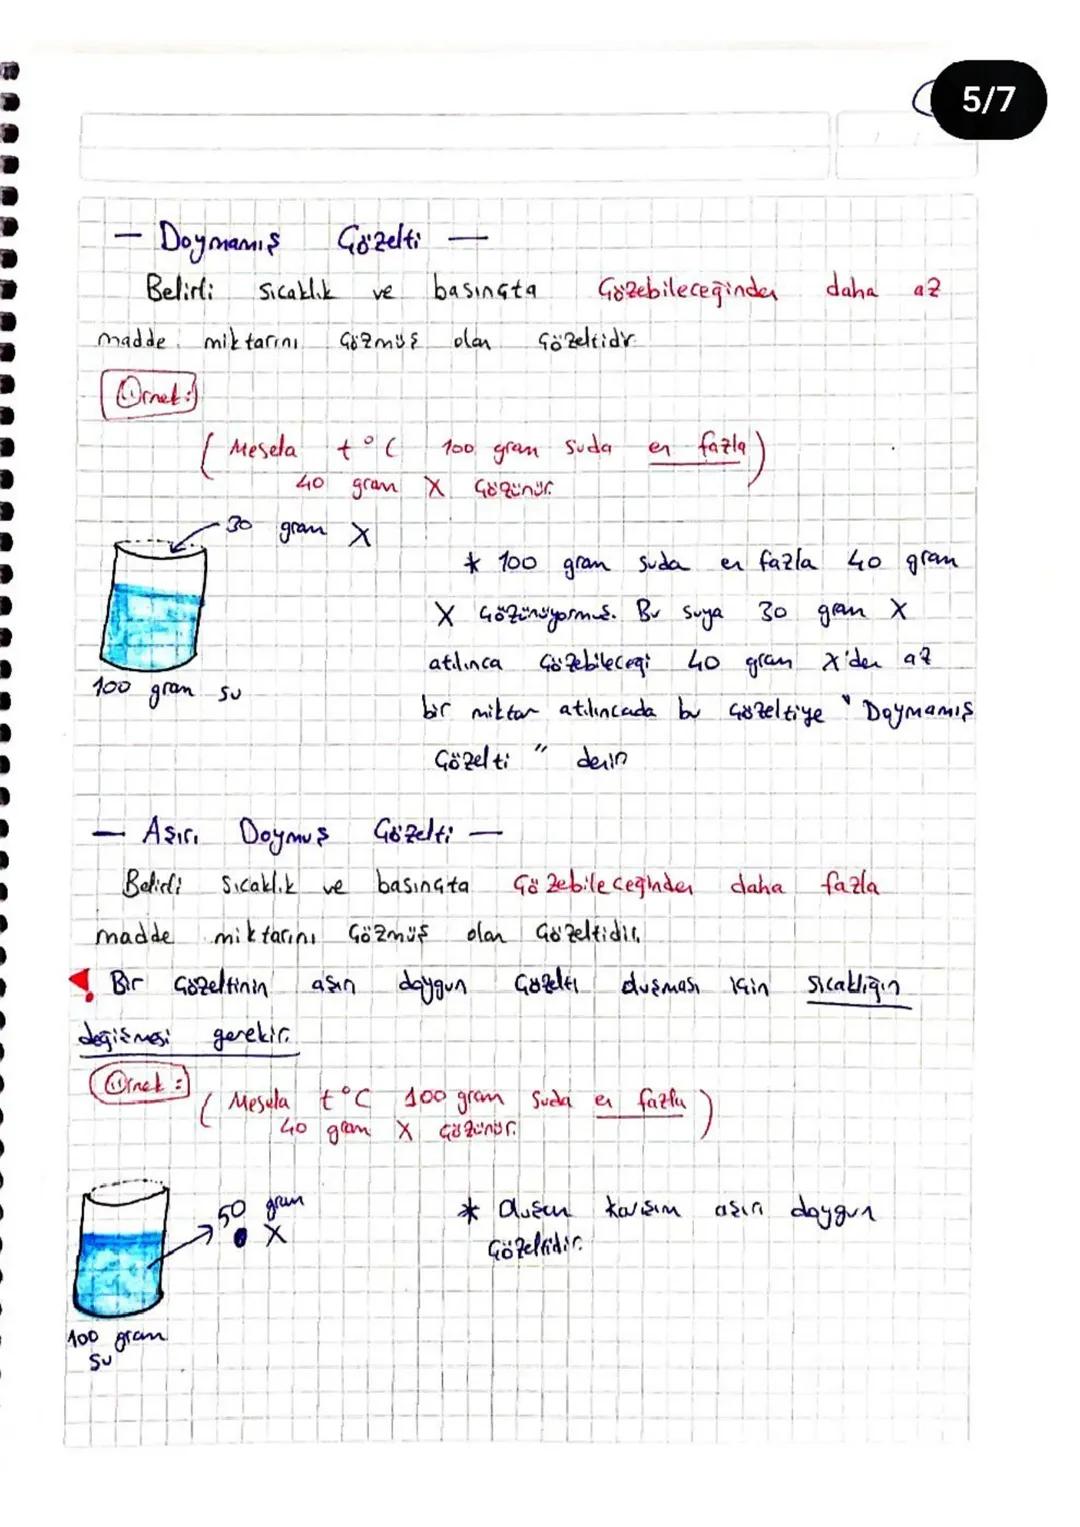 5/7
— Doymamış Çözelti —
Belirli sıcaklık ve basınçta Çözebileceğinden daha az
madde miktarını çözmüş olan çözeltidir.
Örnek:
( Mesela t°C 100 gram suda en fazla )
40 gram X çözünür.
30 gram X
* 100 gram suda en fazla 40 gram
X çözünüyormuş. Bu suya 30 gram X
atılınca çözebileceği 40 gram X'den az
100 gram su
bir miktar atılıncada bu çözeltiye " Doymamış
Çözelti " denir
— Aşırı Doymuş Çözelti —
Belirli sıcaklık ve basınçta çözebileceğinden daha fazla
madde miktarını çözmüş olan çözeltidir.
! Bir çözeltinin aşırı doygun çözelti oluşması için sıcaklığın
değişmesi gerekir.
Örnek:
( Mesela t°C 100 gram suda en fazla )
40 gram X çözünür.
50 gram
X
* Oluşan karışım aşırı doygun
çözeltidir.
100 gram
su